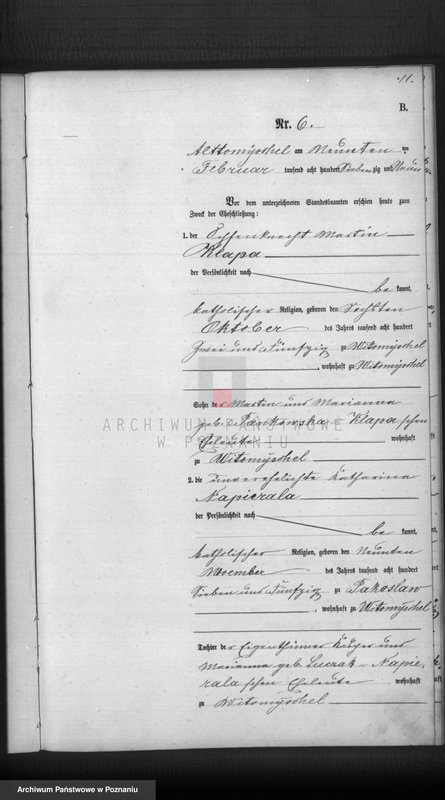 11.
B.
Nr. 6.
Alttomyschel am Neunten ten
Februar tausend acht hundert Siebenzig und Neun
Vor dem unterzeichneten Standesbeamten erschien heute zum
Zweck der Eheschließung:
1. der Ochsenknecht Martin
Klapa
der Persönlichkeit nach
be kannt,
katholischer Religion, geboren den Sechsten
Oktober des Jahres tausend acht hundert
Zwei und Fünfzig zu Witomyschel
, wohnhaft zu Witomyschel
Sohn der Martin und Marianna
geb. Pankowska Klapa'schen
Eheleute wohnhaft
zu Witomyschel
2. die unverehelichte Katharina
Napierala
der Persönlichkeit nach
be kannt,
katholischer Religion, geboren den Neunten
November des Jahres tausend acht hundert
Sieben und Fünfzig zu Pakoslaw
, wohnhaft zu Witomyschel
Tochter der Eigenthümer und
Marianna geb. Napie-
rala'schen Eheleute wohnhaft
zu Witomyschel
ARCHIWUM PAŃSTWOWE
W POZNANIU
Archiwum Państwowe w Poznaniu